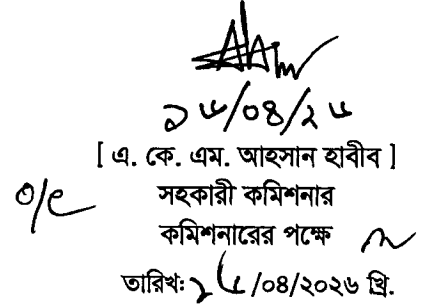 ১৬/০৪/২৬
[ এ. কে. এম. আহসান হাবীব ]
সহকারী কমিশনার
কমিশনারের পক্ষে
তারিখ: ১৬/০৪/২০২৬ খ্রি.